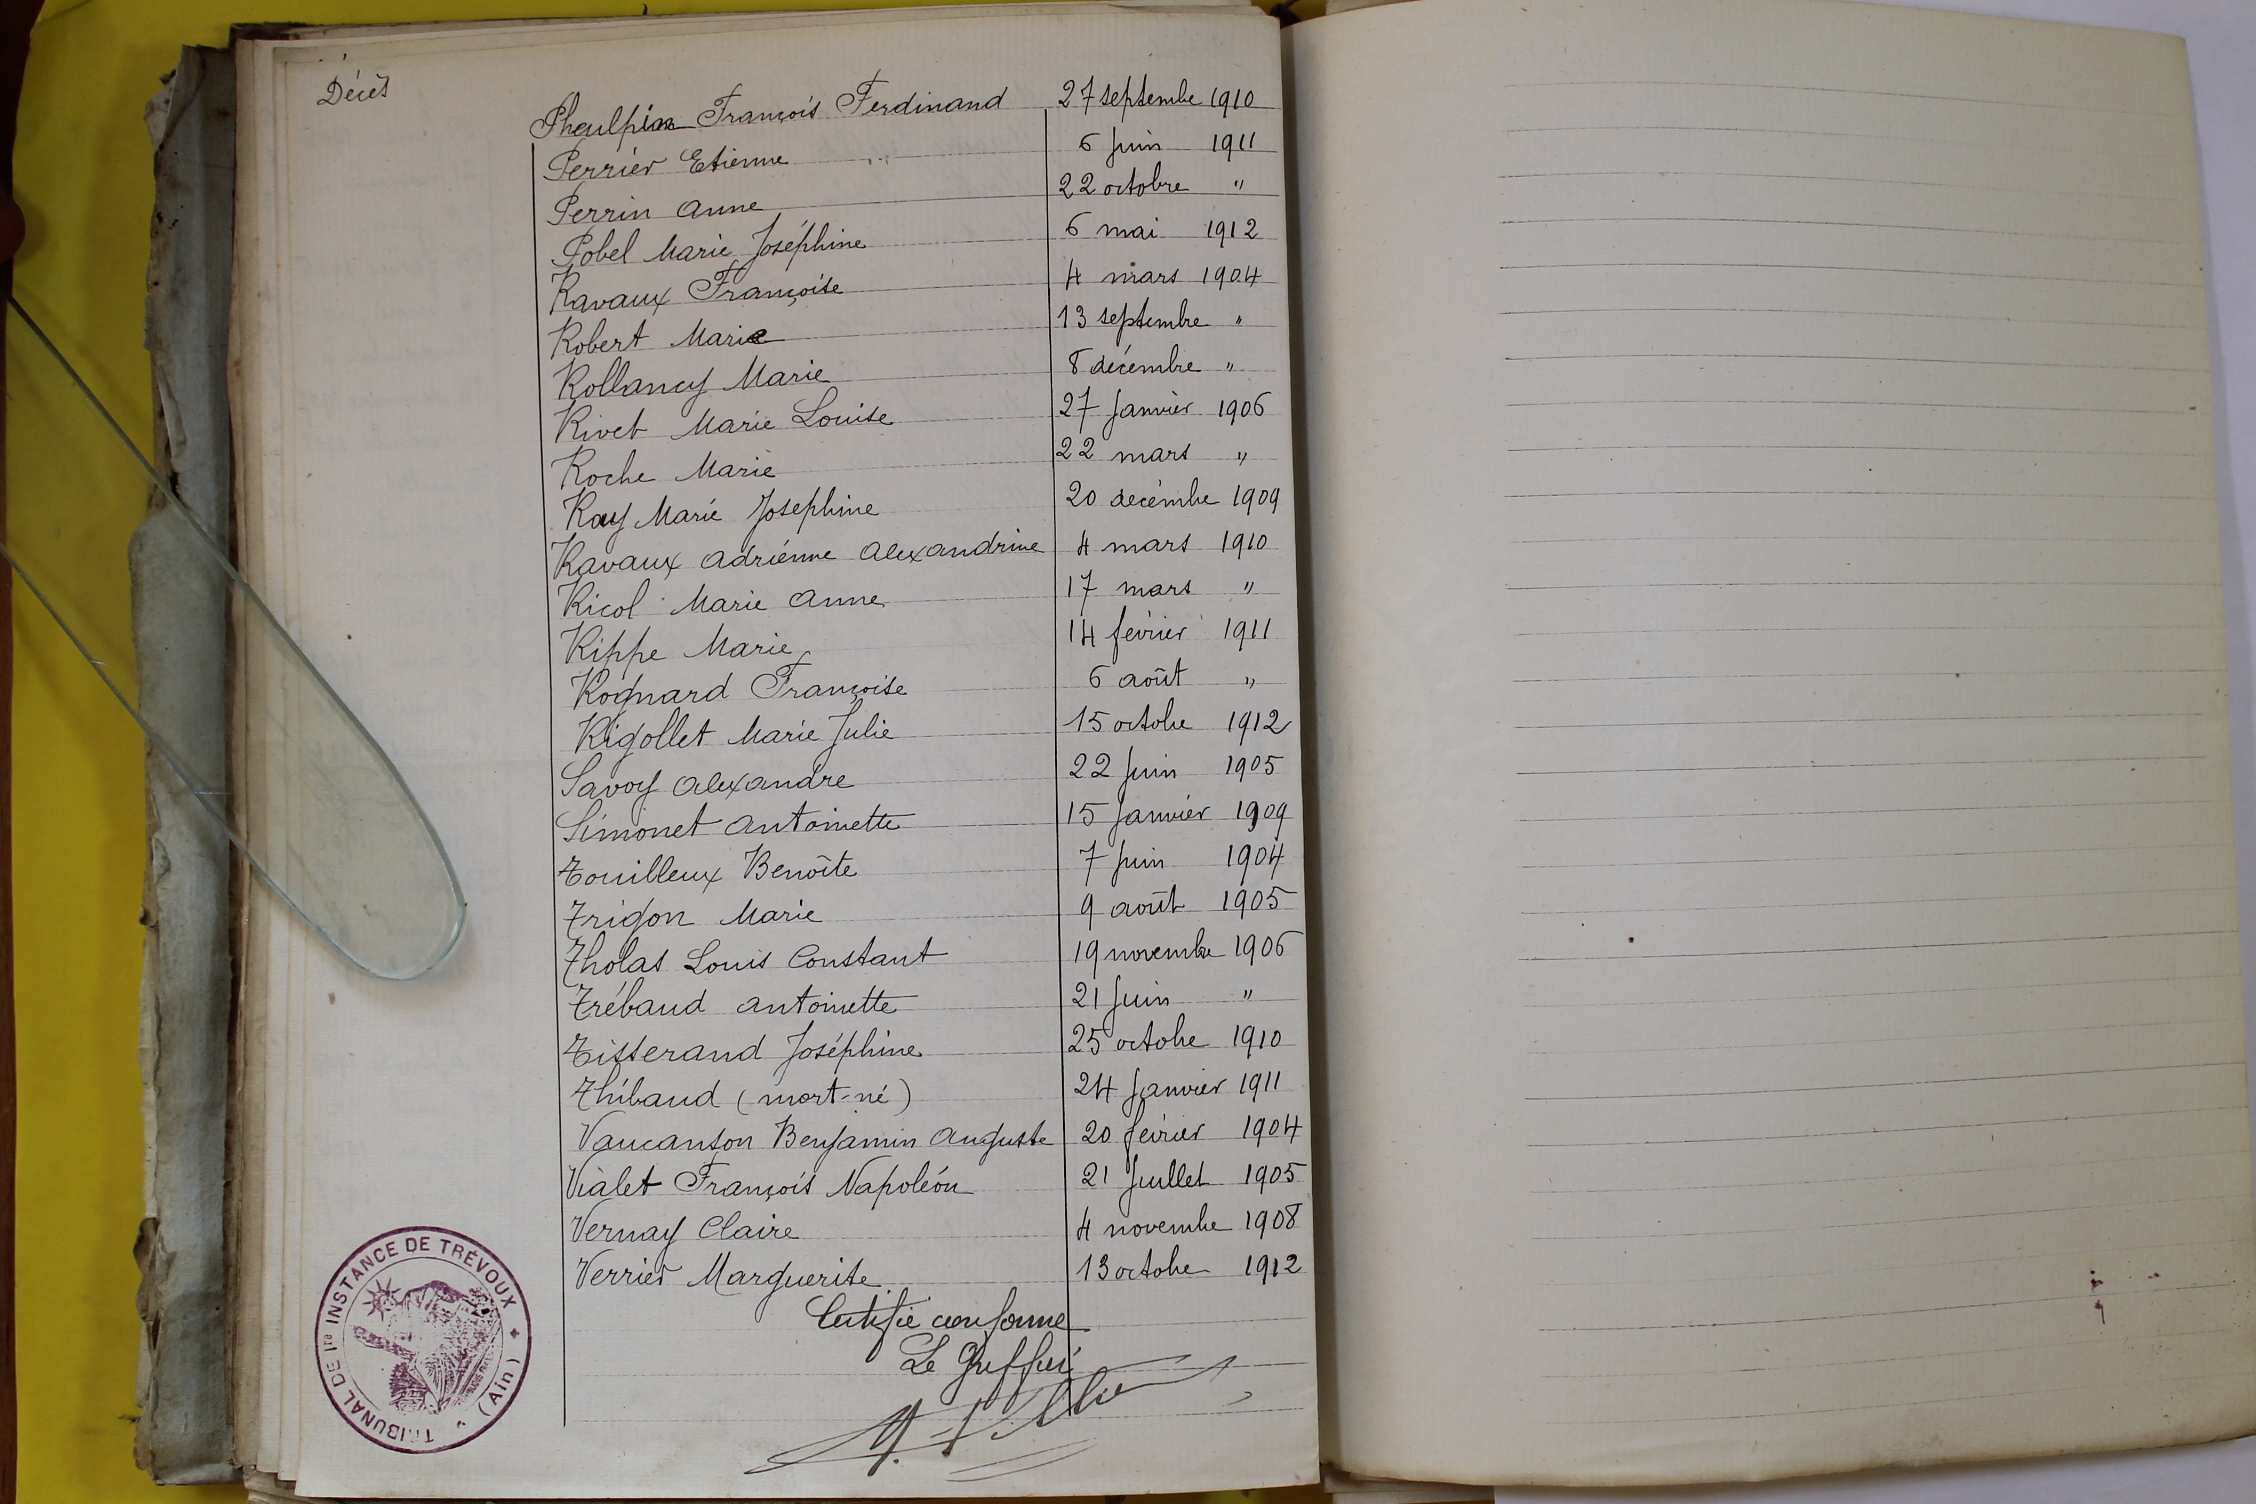 Décès
Pheulpin François Ferdinand 27 septembre 1910
Perrier Etienne 6 Juin 1911
Perrin Anne 22 octobre "
Pobel Marie Joséphine 6 mai 1912
Ravaux Françoise 4 mars 1904
Robert Marie 13 septembre "
Rollancy Marie 8 décembre "
Rivet Marie Louise 27 Janvier 1906
Roche Marie 22 mars "
Ray Marie Josephine 20 décembre 1909
Ravaux Adrienne Alexandrine 4 mars 1910
Ricol Marie Anne 17 mars "
Rippe Marie 14 février 1911
Rognard Françoise 6 août "
Rigollet Marie Julie 15 octobre 1912
Savoy Alexandre 22 Juin 1905
Simonet Antoinette 15 Janvier 1909
Touilleux Benoîte 7 Juin 1904
Trigon Marie 9 août 1905
Tholas Louis Constant 19 novembre 1906
Trébaud Antoinette 21 Juin "
Tisserand Joséphine 25 octobre 1910
Thibaud (mort-né) 24 Janvier 1911
Vaucanson Benjamin Auguste 20 février 1904
Vialet François Napoléon 21 Juillet 1905
Vernay Claire 4 novembre 1908
Verrier Marguerite 13 octobre 1912
Certifié conforme
Le Greffier
TRIBUNAL DE 1re INSTANCE DE TRÉVOUX
(Ain)